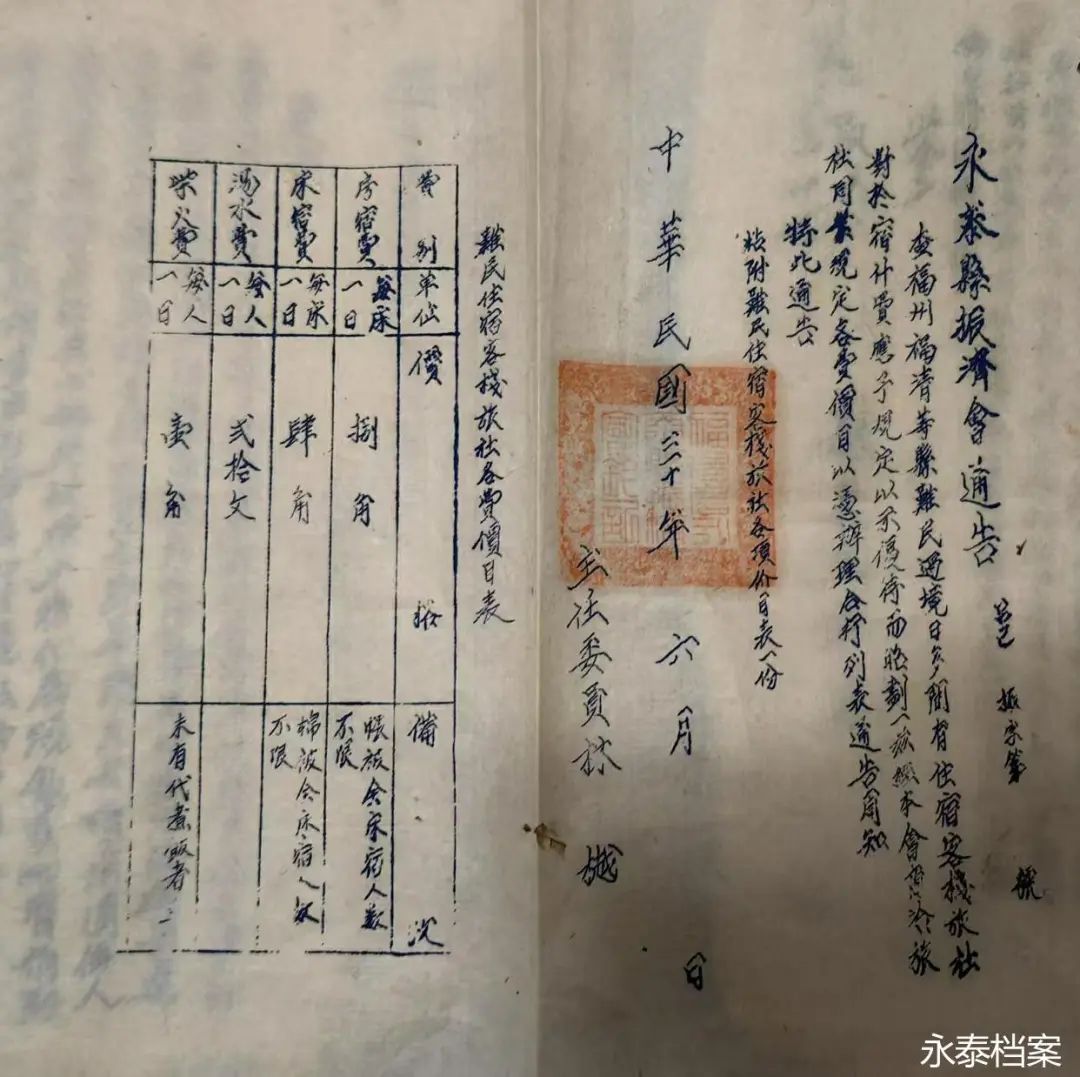 永泰縣振濟會通告
振字第 號
查福州福清等縣難民過境日多間有住宿客棧旅社
對於宿什費應予規定以示優待而昭劃一茲經本會召洽旅
社同業規定各費價目以憑辦理合行列表通告周知
特此通告
粘附難民住宿客棧旅社各項价目表一份
中華民國三十年六月 日
主任委員林樾
難民住宿客棧旅社各費價目表
費別 單位 價格 備況
房宿費 每床一日 捌角 帳被全床宿人数不限
床宿費 每床一日 肆角 棉被全床宿人数不限
湯水費 每人一日 弍拾文
柴火費 每人一日 壹角 未有代煮飯者
永泰档案